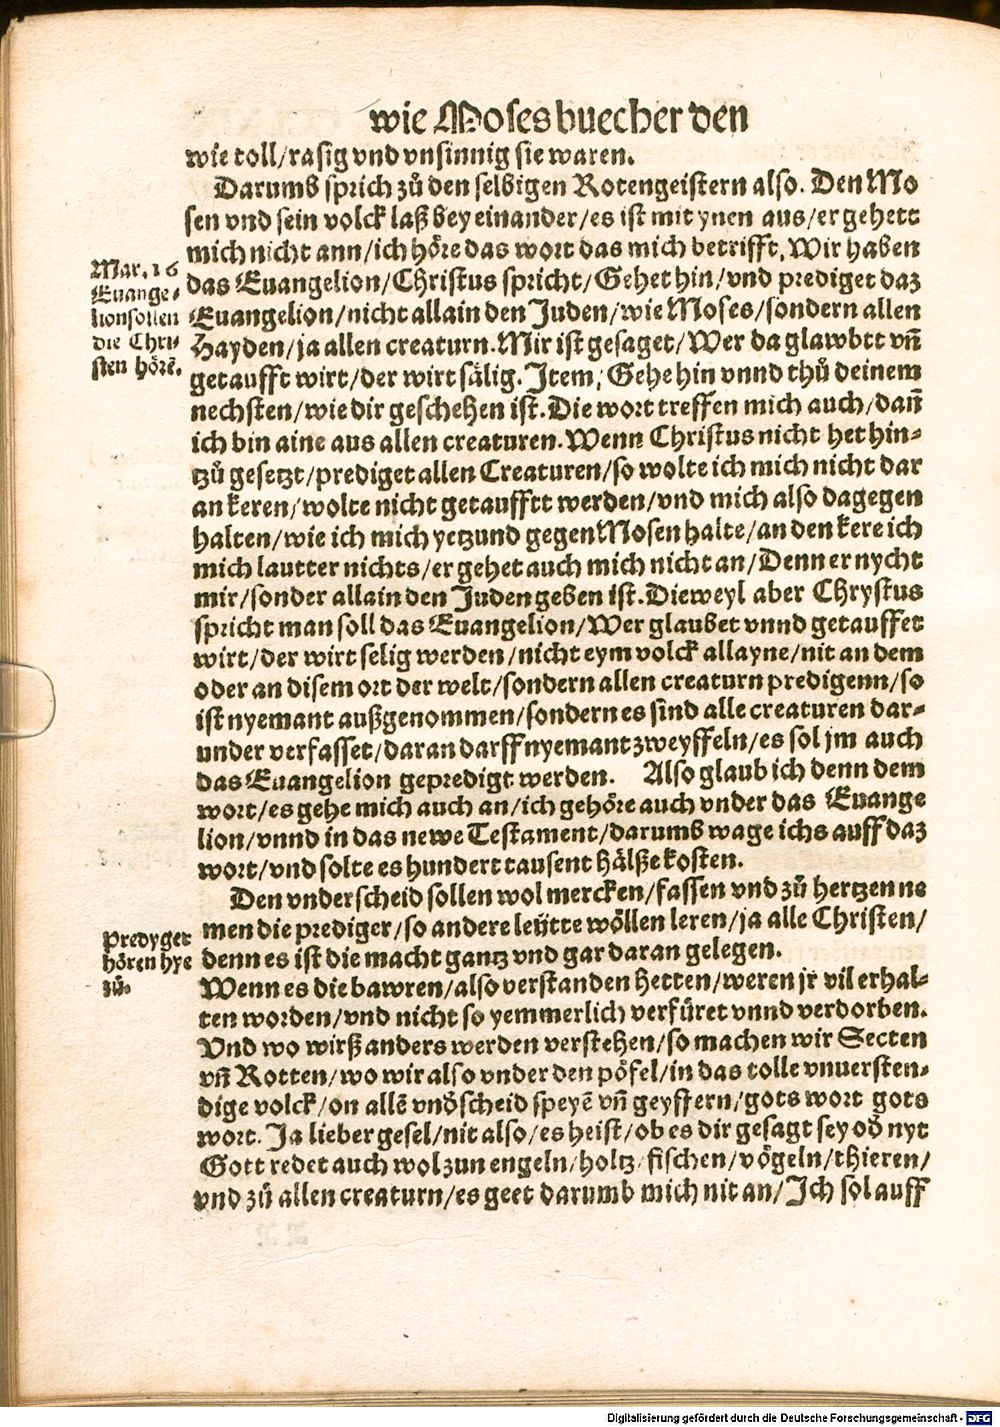 wie Moses buecher den
wie toll/rasig vnd vnsinnig sie waren.
Darumb sprich zů den selbigen Rotengeistern also. Den Mo
sen vnd sein volck laß bey einander/es ist mit ynen aus/er gehett
mich nicht ann/ich höre das wort das mich betrifft, Wir haben
das Euangelion/Christus spricht/Gehet hin/vnd prediget daz
Euangelion/nicht allain den Juden/wie Moses/sondern allen
Hayden/ja allen creaturn. Mir ist gesaget/Wer da glawbtt vñ
getaufft wirt/der wirt sälig. Item, Gehe hin vnnd thů deinem
nechsten/wie dir geschehen ist. Die wort treffen mich auch/dañ
ich bin aine aus allen creaturen. Wenn Christus nicht het hin-
tzů gesetzt/prediget allen Creaturen/so wolte ich mich nicht dar
an keren/wolte nicht getaufftt werden/vnd mich also dagegen
halten/wie ich mich yetzund gegen Mosen halte/an den kere ich
mich lautter nichts/er gehet auch mich nicht an/Denn er nycht
mir/sonder allain den Juden geben ist. Dieweyl aber Chrystus
spricht man soll das Euangelion/Wer glaubet vnnd getauffet
wirt/der wirt selig werden/nicht eym volck allayne/nit an dem
oder an disem ort der welt/sondern allen creaturn predigenn/so
ist nyemant außgenommen/sondern es sind alle creaturen dar-
under verfasset/daran darff nyemant zweyffeln/es sol jm auch
das Euangelion gepredigt werden. Also glaub ich denn dem
wort/es gehe mich auch an/ich gehöre auch vnder das Euange
lion/vnnd in das newe Testament/darumb wage ichs auff daz
wort/vnd solte es hundert tausent hälße kosten.
Den vnderscheid sollen wol mercken/fassen vnd zů hertzen ne
men die prediger/so andere leütte wöllen leren/ja alle Christen/
denn es ist die macht gantz vnd gar daran gelegen.
Wenn es die bawren/also verstanden hetten/weren jr vil erhal-
ten worden/vnd nicht so yemmerlich verfüret vnnd verdorben.
Vnd wo wirß anders werden verstehen/so machen wir Secten
vñ Rotten/wo wir also vnder den pöfel/in das tolle vnuersten-
dige volck/on allē vnd̕scheid speyē vñ geyffern/gots wort gots
wort. Ja lieber gesel/nit also/es heist/ob es dir gesagt sey od̕ nyt
Gott redet auch wol zun engeln/holtz/fischen/vögeln/thieren/
vnd zů allen creaturn/es geet darumb mich nit an/Ich sol auff
Mar. 16
Euange-
lion sollen
die Chri-
sten hörē.
Predyger
hören hye
zů.
Digitalisierung gefördert durch die Deutsche Forschungsgemeinschaft - DFG